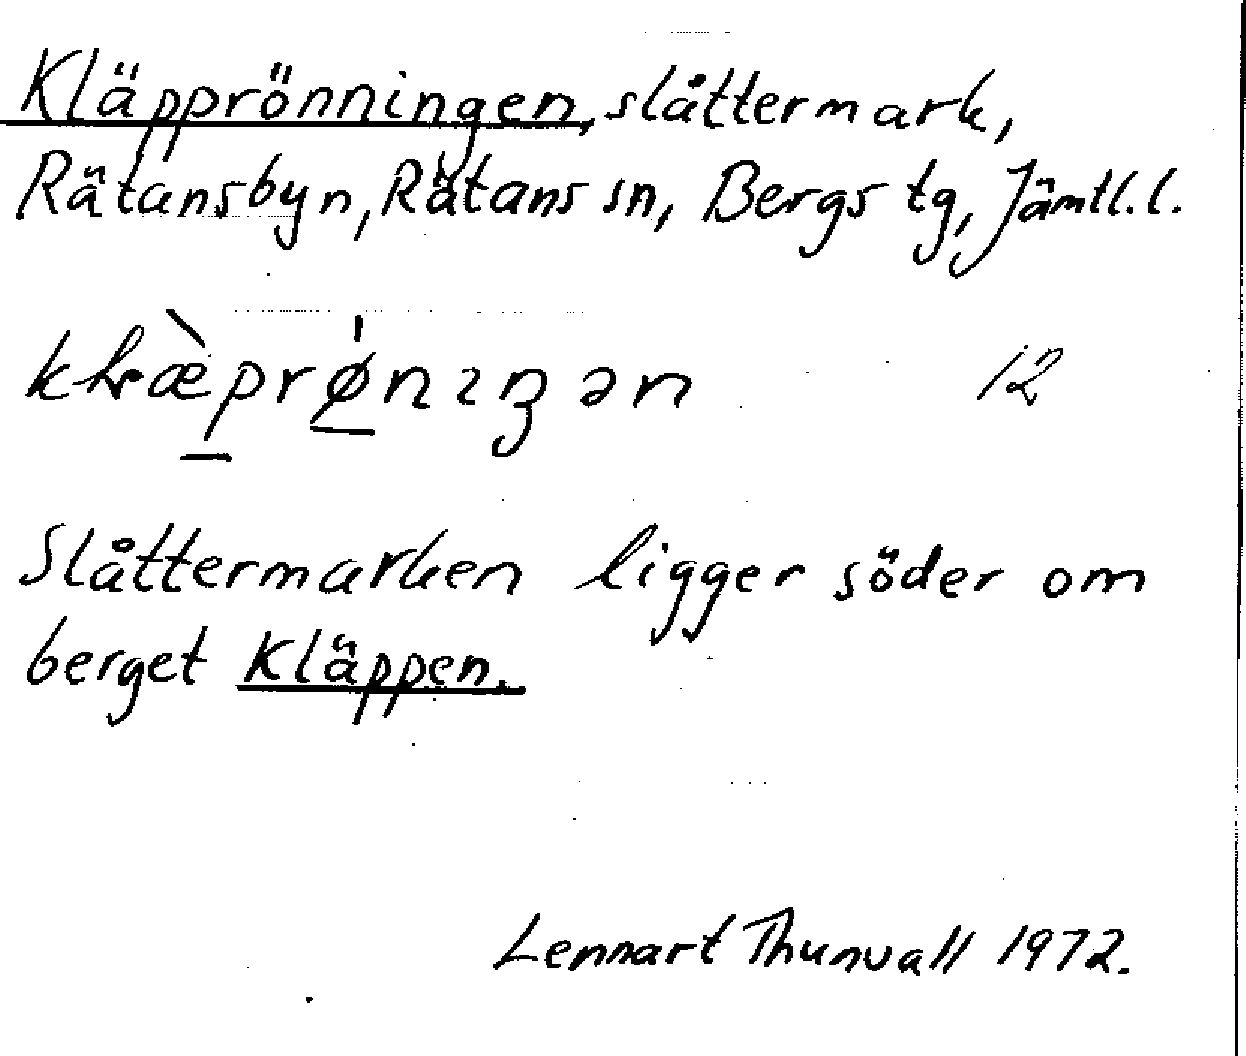 Kläpprönningen, slåttermark,
Rätansbyn, Rätans sn, Bergs tg, Jämtl. l.
klæ̀prǿnıŋən 12
Slåttermarken ligger söder om
berget Kläppen.
Lennart Thunvall 1972.